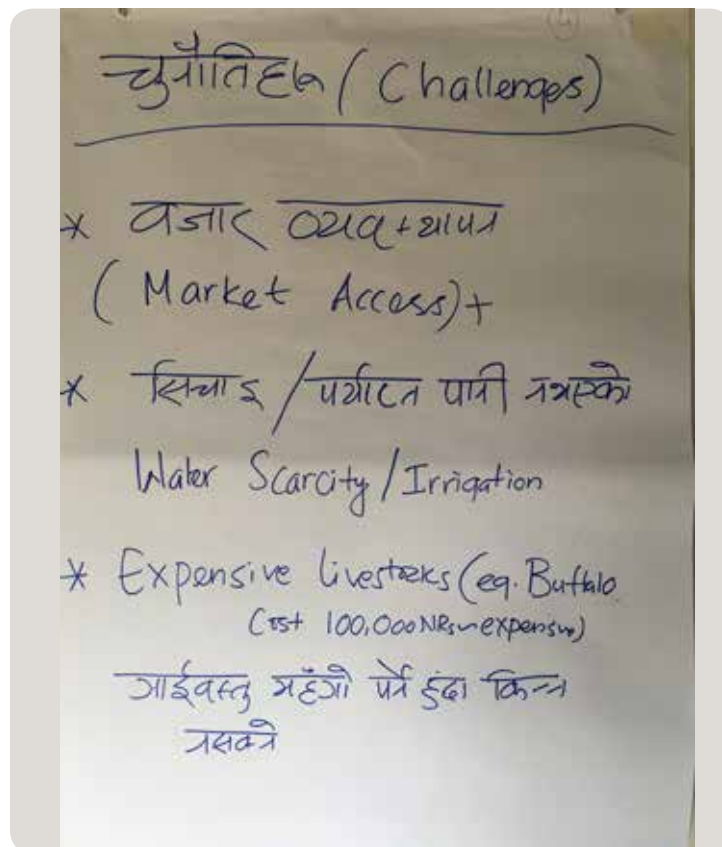 4
चुनौतिहरू (Challenges)
* वजार व्यवस्थापन
(Market Access)+
* सिचाइ / पर्याप्त पानी नभएको
Water Scarcity / Irrigation
* Expensive livestocks (eg. Buffalo
Cost 100,000 NRs ~ expensive)
गाईवस्तु महँगो पर्ने हुंदा किन्न
नसक्ने